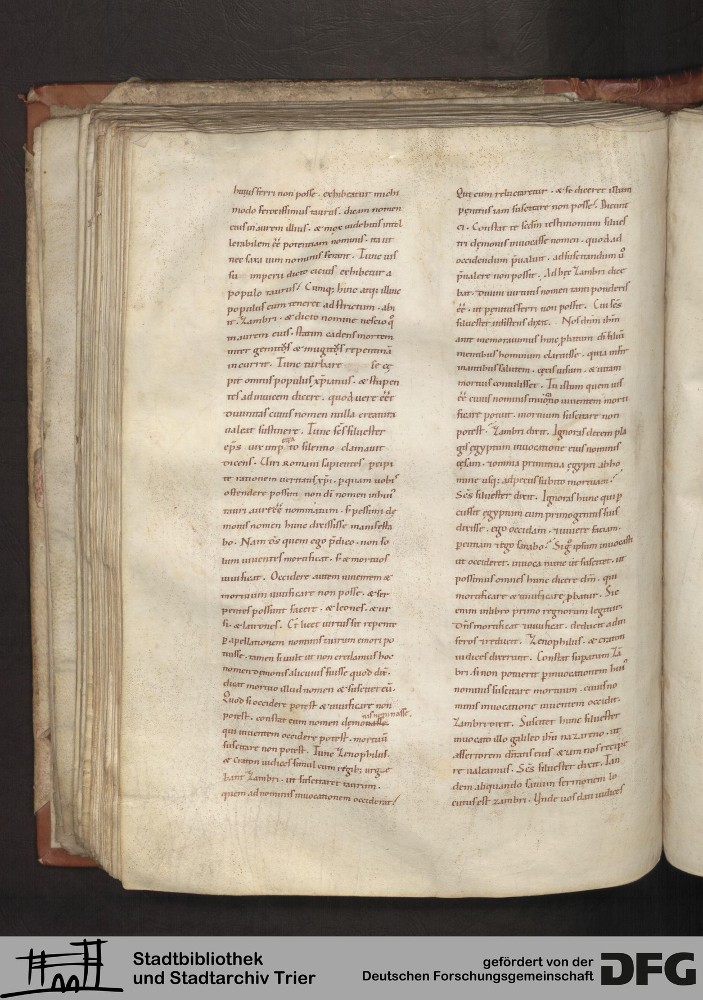 huius ferri non posse. exhibeatur michi
modo ferocissimus taurus. dicam nomen
eius in aurem illius. & mox uidebitis intol
lerabilem eē potentiam nominis. ita ut
nec saxa uim nominis ferant. Tunc ius
su imperii dicto cicius exhibetur a
populo taurus. Cumq; hinc atq; illinc
populus eum teneret adstrictum. abi
it Zambri. & dicto nomine nescio q̊
in aurem eius. statim cadens mortem
inter gemit & mugit repentinā
incurrit. Tunc turbare se cę
pit omnis populus xp̄ianus. & stupen
tes ad inuicem dicere. quod uere eēt
diuinitas cuius nomen nulla creatura
ualeat sustinere. Tunc scs siluester
ep̄s uix imp to silentio clamauit
dicens. Uiri romani sapientes. p̄cipi
te rationem ueritatis xp̄i. p quam uobis
ostendere possim. non di nomen in huius
tauri aureē nominatum. s pessimi de
monis nomen hunc dixisse manifesta
bo. Nam d̄s quem ego p̄dico. non so
lum uiuentes mortificat. s & mortuos
uiuificat. Occidere autem uiuentem &
mortuum uiuificare non posse. & ser
pentes possunt facere. & leones. & ur
si. & latrones. Et licet uirtus sit repente
p appellationem nominis taurum emori po
tuisse. tamen si uult ut non credamus hoc
nomen demonis alicuius fuisse quod dix̄.
dicat mortuo illud nomen & suscitet eū.
Quod si occidere potest & uiuificare non
potest. constat eum nomen demo
qui uiuentem occidere potest. mortuū
suscitare non potest. Tunc Zenophilus.
& craton iudices simul cum regib; urgue
bant Zambri. ut suscitaret taurum.
quem ad nominis inuocationem occiderat.
Qui cum reluctaretur. & se diceret istum
penitus iam suscitare non posse. Dicunt
ei. Constat te scdm testimonium silues
tri demonis inuocasse nomen. quod ad
occidendum p̄ualuit. ad suscitandum ů
p̄ualere non possit. Ad hęc Zambri dice
bat. diuini uirtutis nomen tanti ponderis
eē. ut penitus ferri non possit. Cui scs
siluester insistens dixit. Nos dn̄m ih̄m
ante memorauimus hunc plurimū di filiū
mentibus hominum claruisse. quia
mantibus salutem. cęcis uisum. & uitam
mortuis contulisset. Tu istum quem uis
eē cuius nominis inuocatio uiuentem morti
ficare potuit. mortuum suscitare non
potest. Zambri dixit. Ignoras decem pla
gis egyptum inuocatione eius nominis
cęsam. & omnia primitiua egypti ab ho
mine usq; ad pecus subito mortuam.
Scs siluester dixit. Ignoras hunc qui p
cussit egyptum cum primogenitis suis
dixisse. ego occidam. & uiuere faciam.
percutiam & ego sanabo. Si g̊ ipsum inuocasti
ut occideret. inuoca nunc ut suscitet. ut
possimus omnes hunc dicere dn̄m. qui
mortificare & uiuificare p̄batur. Sic
enim in libro primo regnorum legitur.
Dn̄s mortificat & uiuificat. deducit ad in
feros & reducit. Zenophilus. & craton
iudices dixerunt. Constat superatum Zā
bri. si non potuerit p inuocationem hui9
nominis suscitare mortuum. cuius no
minis inuocatione uiuentem occidit.
Zambri dixit. Suscitet hunc siluester
inuocato illo galileo ih̄u nazareno. ut
assertorem diuinitatis eius. & uim nos recipe
re ualeamus. Scs siluester dixit. Tan
dem aliquando sanum sermonem lo
cutus est zambri. Unde uos dati iudices
Stadtbibliothek
und Stadtarchiv Trier
gefördert von der
Deutschen Forschungsgemeinschaft
DFG